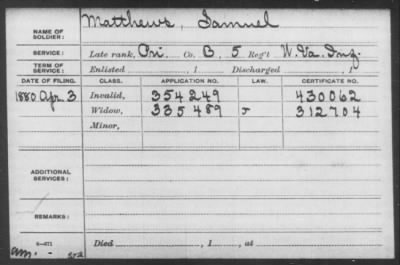 NAME OF SOLDIER: Matthews, Samuel
SERVICE: Late rank, Pri. Co. B, 5 Reg't W. Va. Inf.
TERM OF SERVICE: Enlisted , 1 Discharged , 1
DATE OF FILING. CLASS. APPLICATION NO. LAW. CERTIFICATE NO.
1880 Apr. 3 Invalid, 354249 430062
Widow, 335489 J 312704
Minor,
ADDITIONAL SERVICES:
REMARKS:
6-071
Died , 1 , at